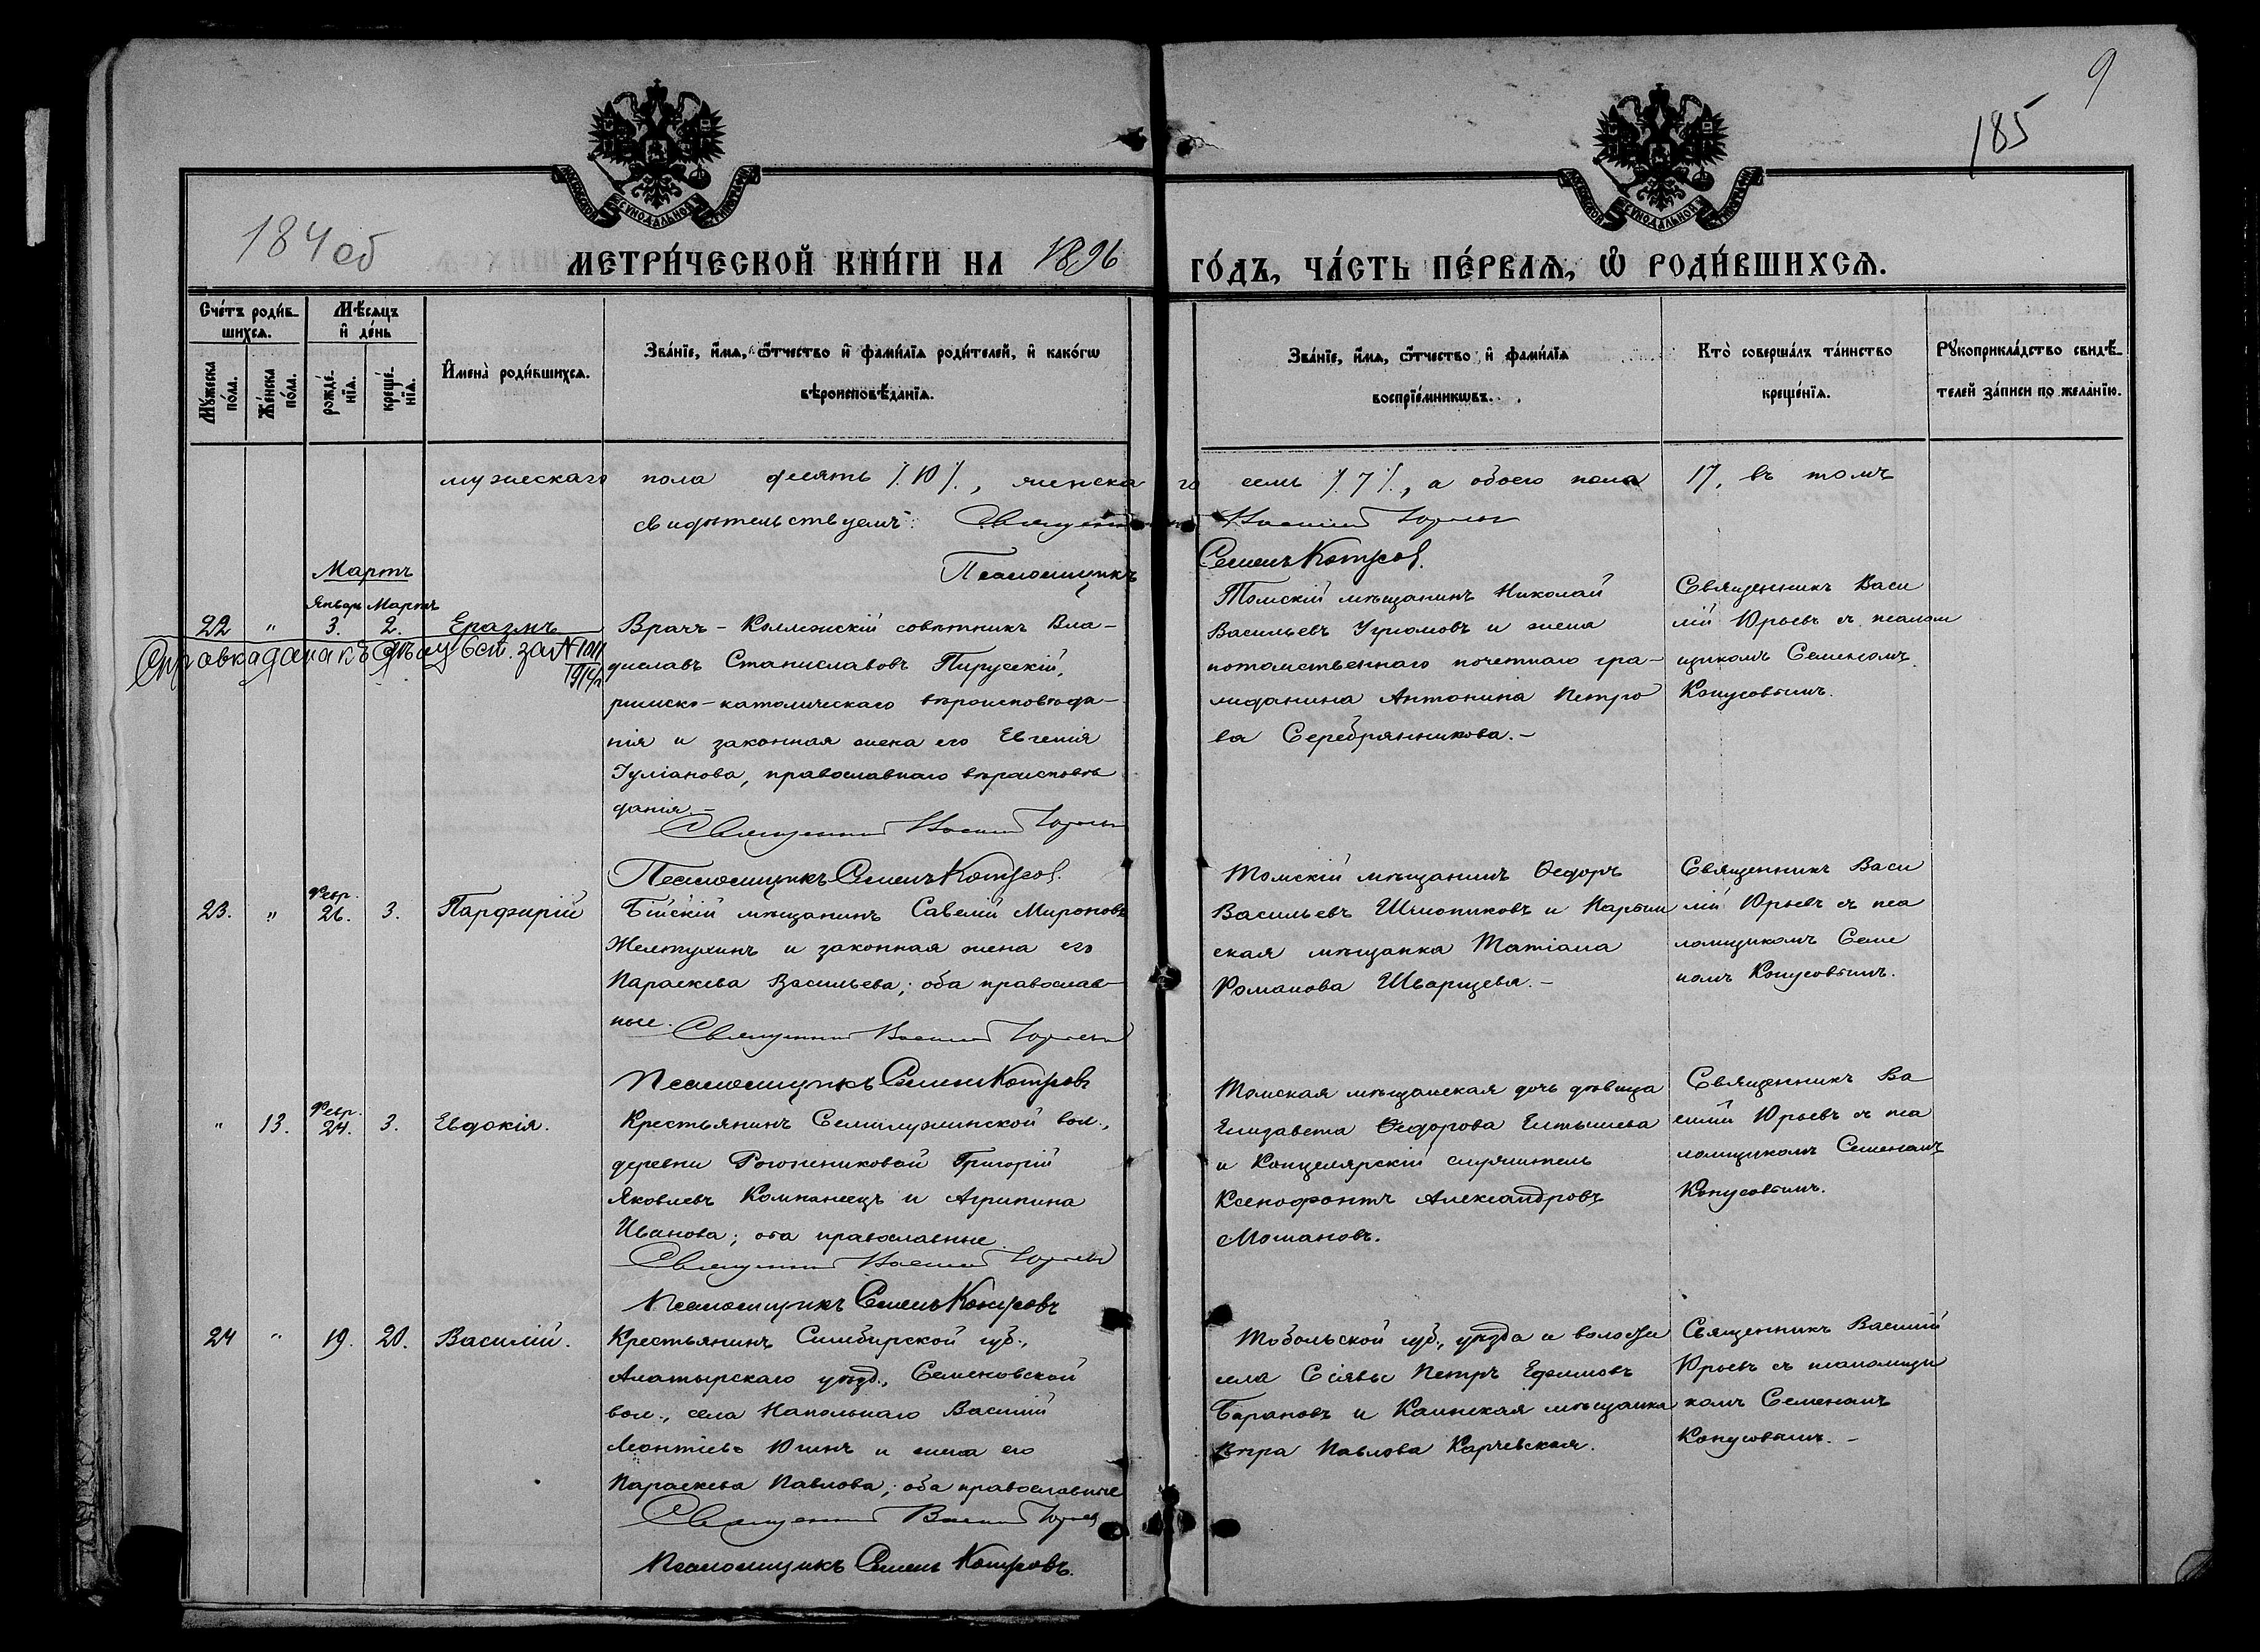 9
185
184 об
МЕТРИ́ЧЕСКОЙ КНИ́ГИ НА 1896 ГО́ДЪ, ЧА́СТЬ ПЕ́РВАѦ, Ѽ РОДИ́ВШИХСѦ.
Сче́тъ роди́в-
шихсѧ.
Мѣ́сѧцъ
и҆ де́нь
Мꙋ́жеска
по́ла.
Же́нска
по́ла.
рожде́-
нїѧ.
креще́-
нїѧ.
И҆мена̀ роди́вшихсѧ.
Зва́нїе, и҆́мѧ, ѻ҆́тчество и҆ фами́лїѧ роди́телей, и҆ како́гѡ
вѣроисповѣ́данїѧ.
Зва́нїе, и҆́мѧ, ѻ҆́тчество и҆ фами́лїѧ
воспрїе́мникѡвъ.
Кто̀ соверша́лъ та́инство
креще́нїѧ.
Рꙋкоприкла́дство свидѣ́-
телей за́писи по жела́нїю.
мужескаго пола десять /.10/., женскаго семь /.7/., а обоего пола 17, въ томъ
свидѣтельствуемъ: Священникъ Василій Юрьевъ
Псаломщикъ Семенъ Конусовъ.
Мартъ
Январь Мартъ
22 " 3. 2. Еразмъ
Справка дана къ дѣлу за № 1011
1914 г
Врачъ - Коллежскій совѣтникъ Вла-
диславъ Станиславовъ Пирусскій,
римско-католическаго вѣроисповѣда-
нія и законная жена его Евгенія
Іуліанова, православнаго вѣроисповѣ
данія -
Священникъ Василій Юрьевъ
Псаломщикъ Семенъ Конусовъ.
Томскій мѣщанинъ Николай
Васильевъ Угрюмовъ и жена
потомственнаго почетнаго гра-
жданина Антонина Петро
ва Серебрянникова. -
Священникъ Васи
лій Юрьевъ съ псалом
щикомъ Семеномъ
Конусовымъ.
Февр.
23. " 26. 3. Парфирій
Бійскій мѣщанинъ Савелій Мироновъ
Желтухинъ и законная жена его
Параскева Васильева; оба православ-
ные.
Священникъ Василій Юрьевъ
Псаломщикъ Семенъ Конусовъ
Томскій мѣщанинъ Ѳедоръ
Васильевъ и Нарым
ская мѣщанка Татіана
Романова Шварцева. -
Священникъ Васи
лій Юрьевъ съ пса
ломщикомъ Семе
номъ Конусовымъ.
Февр.
" 13. 24. 3. Евдокія.
Крестьянинъ Семилужинской вол.,
деревни Рогожниковой Григорій
Яковлевъ Компанеецъ и Агрипина
Иванова; оба православные.
Священникъ Василій Юрьевъ
Псаломщикъ Семенъ Конусовъ
Томская мѣщанская дочь дѣвица
Елизавета Ѳедорова
и Канцелярскій служитель
Ксенофонтъ Александровъ
Мошановъ.
Священникъ Ва
силій Юрьевъ съ пса
ломщикомъ Семеномъ
Конусовымъ.
24 " 19. 20. Василій.
Крестьянинъ Симбирской губ.,
Алатырскаго уѣзд., Семеновской
вол., села Напольнаго Василій
Леонтьевъ Юсинъ и жена его
Параскева Павлова; оба православные
Священникъ Василій Юрьевъ
Псаломщикъ Семенъ Конусовъ.
Тобольской губ., уѣзда и волости
села Петръ Ефимовъ
Барановъ и Каинская мѣщанка
Вѣра Павлова Карчевская.
Священникъ Василій
Юрьевъ съ псаломщи
комъ Семеномъ
Конусовымъ. -